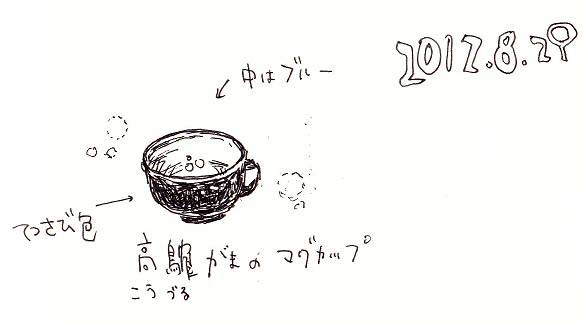 2012.8.29
中はブルー
てつさび色
高鶴がまの マグカップ
こうづる